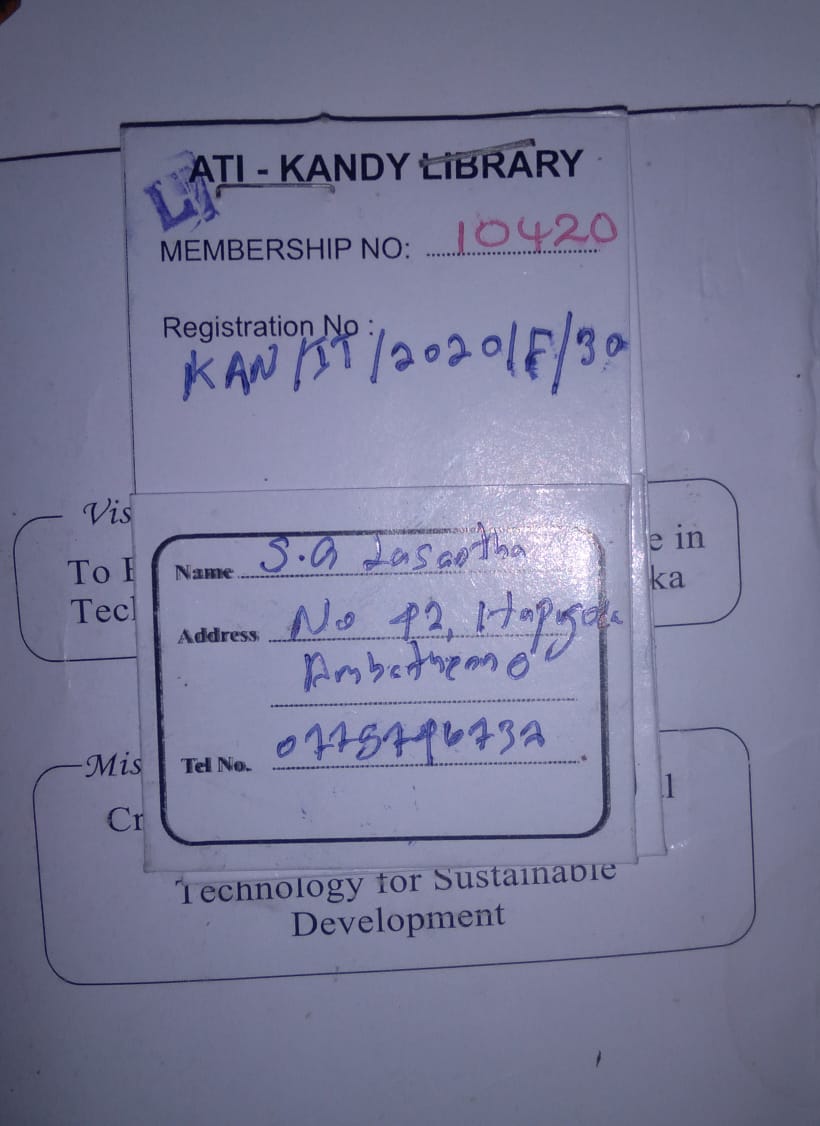 ATI - KANDY LIBRARY
MEMBERSHIP NO: 10420
Registration No :
KAN/IT/2020/F/30
Vis
To
Tec
e in
ka
Name S.A Lasantha
Address No 42, Hapugoda
Ambathenna
Tel No. 0775796732
Mis
Cr
l
Technology for Sustainable
Development